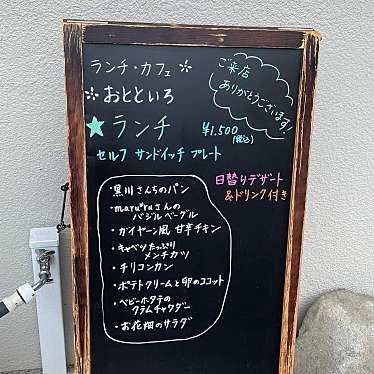 ランチ・カフェ
おとといろ
ご来店
ありがとうございます!
★ランチ
¥1,500
(税込)
セルフ サンドイッチ プレート
日替りデザート
&ドリンク付き
・黒川さんちのパン
・maru*ruさんの
バジルベーグル
・ガイヤーン風 甘辛チキン
・キャベツたっぷり
メンチカツ
・チリコンカン
・ポテトクリームと卵のココット
・ベビーホタテの
クラムチャウダー
・お花畑のサラダ